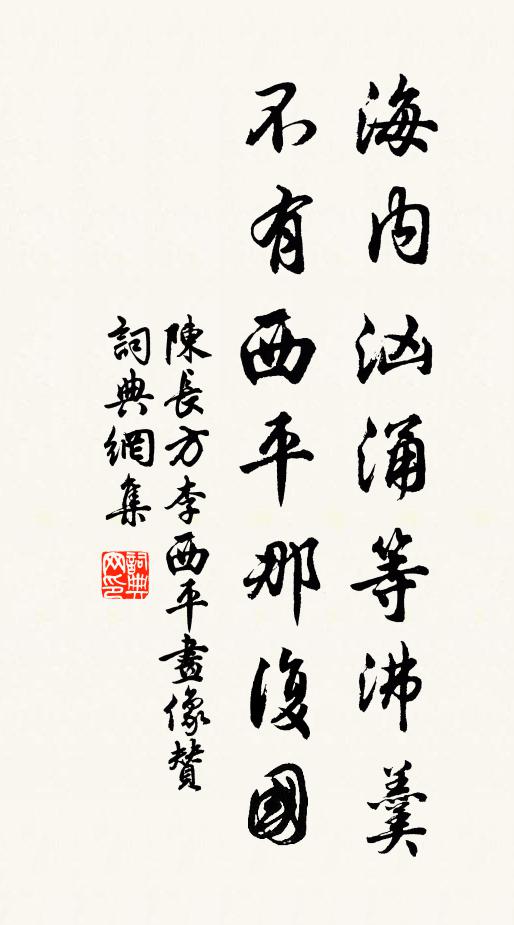 海内汹涌等沸羹
不有西平那復國
陳長方李西平畫像贊
詞典網集
詞典网印